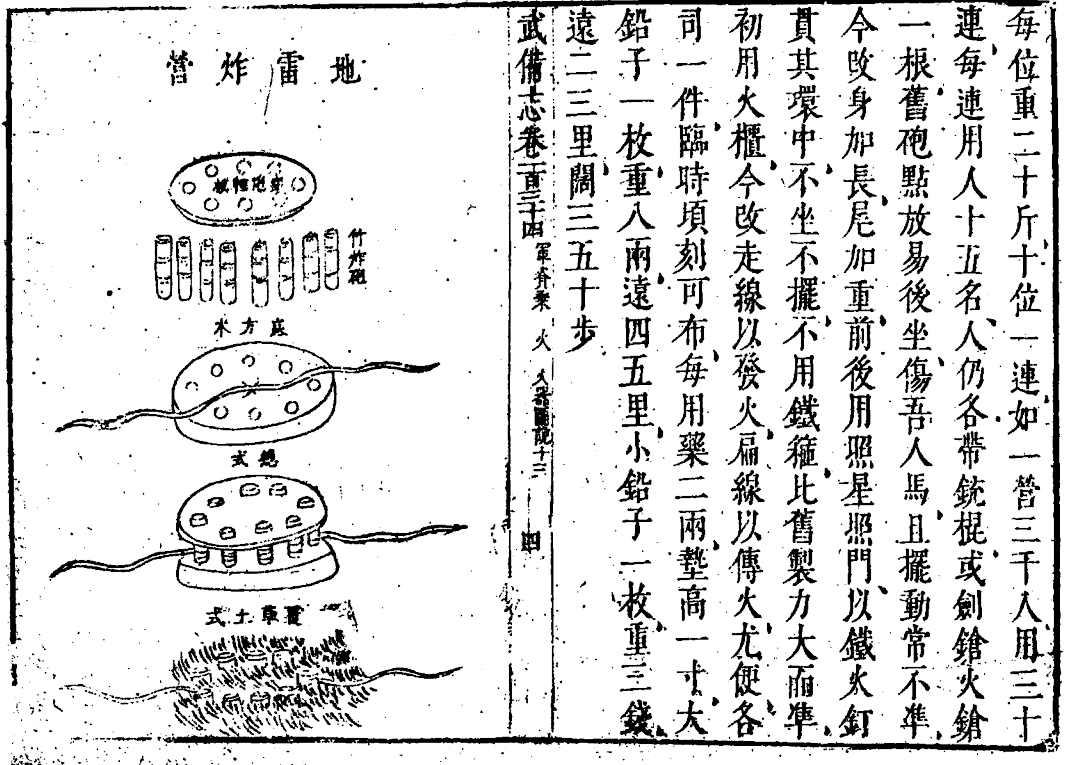 每位重二十斤十位一連如一營三千人用三十
連每連用人十五名人仍各帶銃棍或劍鎗火鎗
一根舊砲點放易後坐傷吾人馬且擺動常不準
今改身加長尾加重前後用照星照門以鐵火釘
貫其環中不坐不擺不用鐵箍比舊製力大而準
初用火櫃今改走線以發火扁線以傳火尤便各
司一件臨時頃刻可布每用藥二兩墊高一寸大
鉛子一枚重八兩遠四五里小鉛子一枚重三錢
遠二三里闊三五十步
武備志卷一百三十四 軍資乘 火 火器圖說十三 四
地雷炸營
竹炸砲
底方木
總式
覆草土式